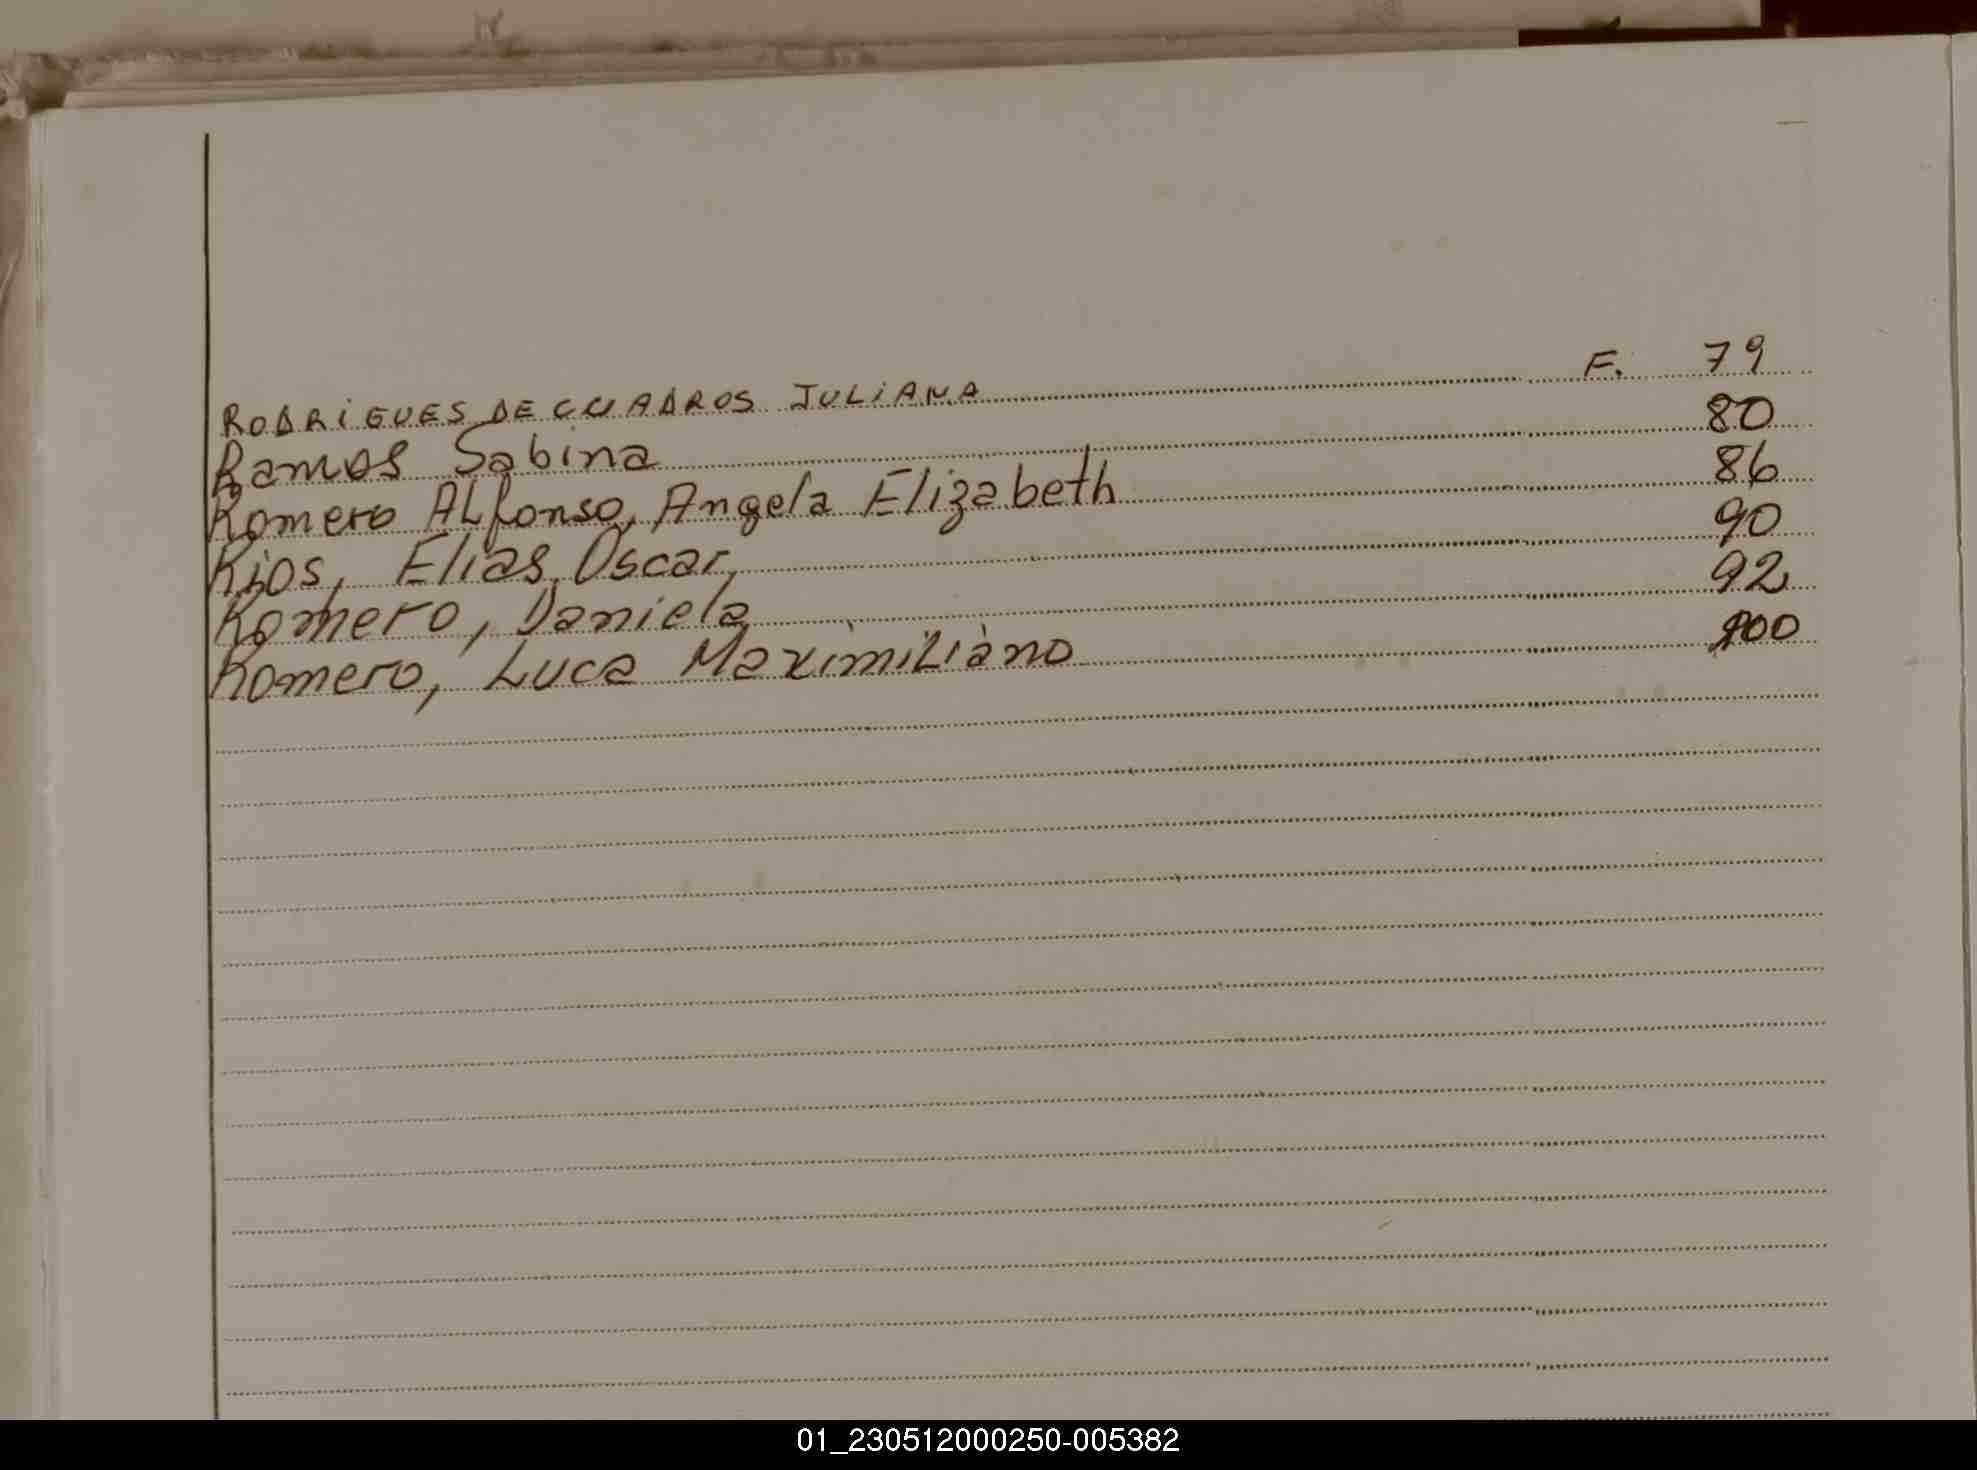 RODRIGUES DE CUADROS JULIANA F. 79
Ramos Sabina 80
Romero ALfonso, Angela Elizabeth 86
Rios, Elias Oscar 90
Romero, Daniela 92
Romero, Luca Maximiliano 100
01_230512000250-005382